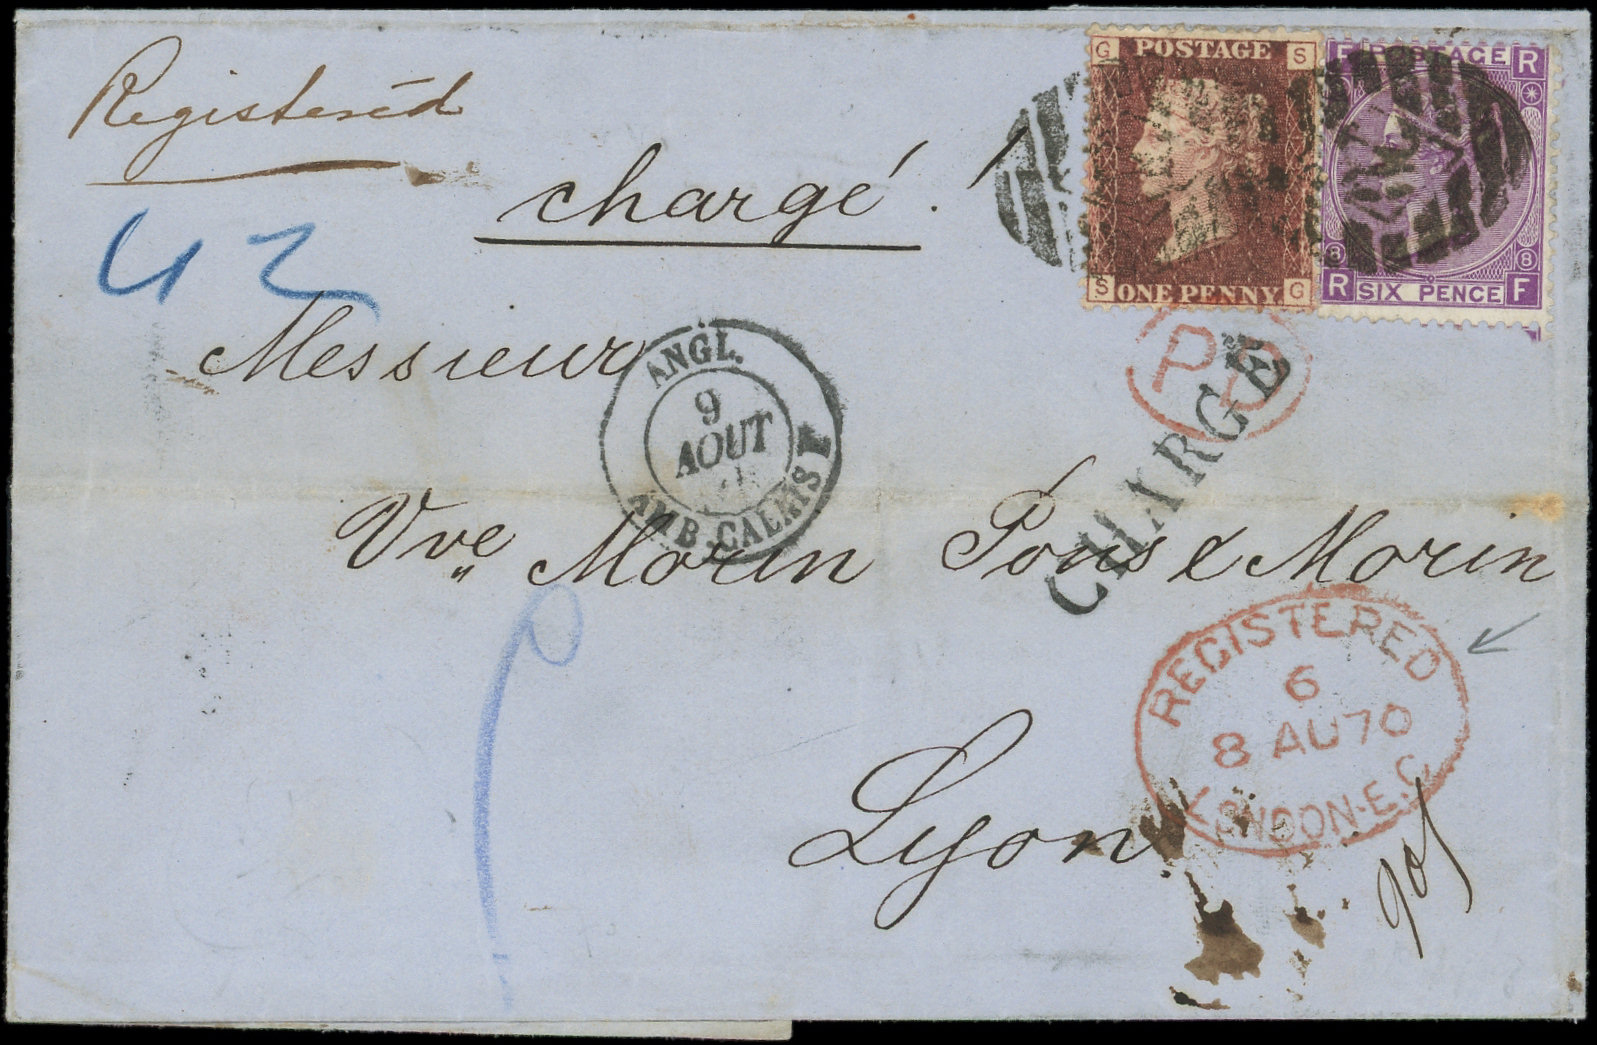 Registered
chargé.
G POSTAGE S
S ONE PENNY G
F POSTAGE R
8 8
R SIX PENCE F
42
Messieurs
ANGL.
9
AOUT
AMB. CALAIS
PD
CHARGE
Vve Morin Pons & Morin
REGISTERED
6
8 AU 70
LONDON·E.C
Lyon